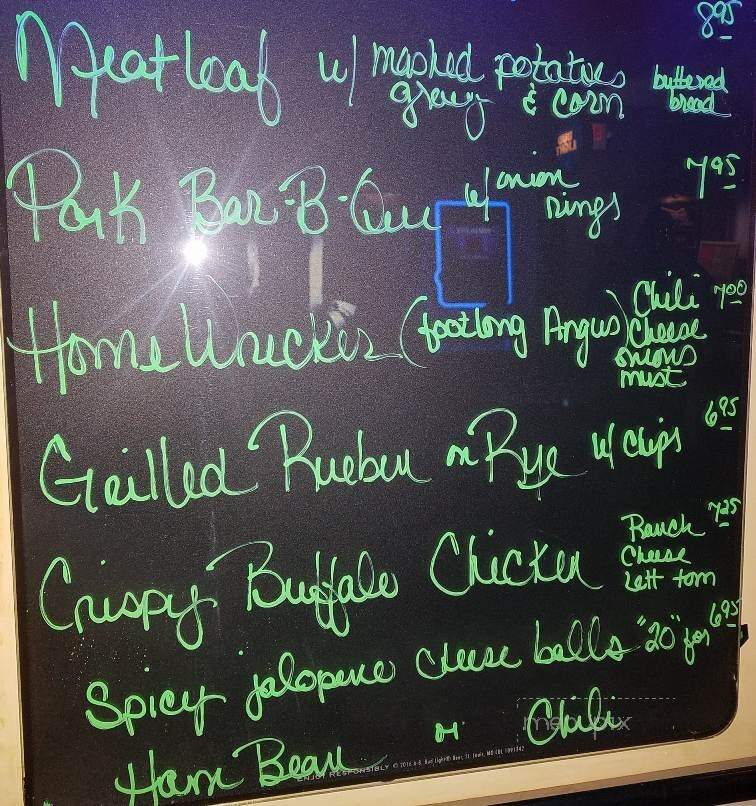 8.95
Meatloaf w/ mashed potatoes buttered
gravy & corn bread
Pork Bar-B-Que w/ onion rings 7.95
Home Wrecker (footlong Angus) Chili 7.00
Cheese
onions
must
Grilled Rueben on Rye w/ chips 6.95
Crispy Buffalo Chicken Ranch 7.25
Cheese
Lett tom
Spicy jalopeno cheese balls "20" for 6.95
Ham Bean or Chili
menupix
ENJOY RESPONSIBLY © 2016 A-B, Bud Light® Beer, St. Louis, MO